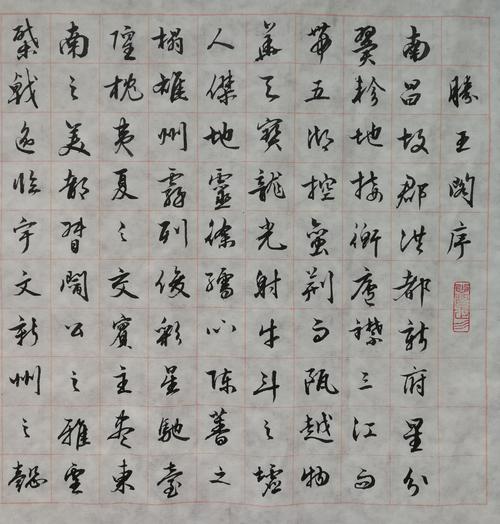 滕王閣序
南昌故郡洪都新府星分
翼軫地接衡廬襟三江而
帶五湖控蠻荊而甌越物
華天寶龍光射牛斗之墟
人傑地靈徐孺下陳蕃之
榻雄州霧列俊彩星馳臺
隍枕夷夏之交賓主盡東
南之美都督閻公之雅望
棨戟遙臨宇文新州之懿